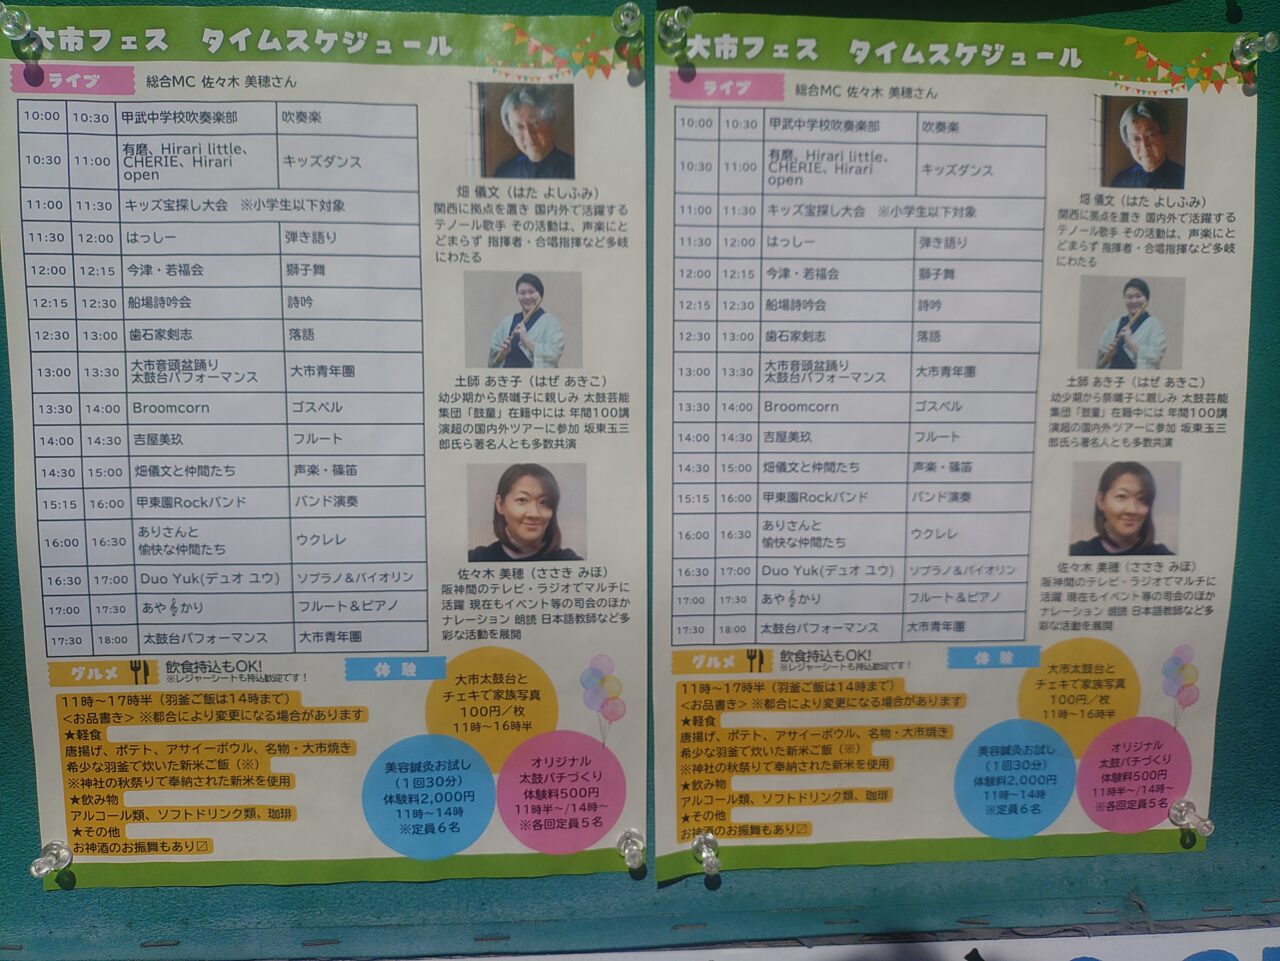 大市フェス　タイムスケジュール
ライブ　総合MC 佐々木 美穂さん
10:00 10:30 甲武中学校吹奏楽部 吹奏楽
10:30 11:00 有磨、Hirari little、
CHERIE、Hirari
open キッズダンス
11:00 11:30 キッズ宝探し大会　※小学生以下対象
11:30 12:00 はっしー 弾き語り
12:00 12:15 今津・若福会 獅子舞
12:15 12:30 船場詩吟会 詩吟
12:30 13:00 歯石家剣志 落語
13:00 13:30 大市音頭盆踊り
太鼓台パフォーマンス 大市青年團
13:30 14:00 Broomcorn ゴスペル
14:00 14:30 吉屋美玖 フルート
14:30 15:00 畑儀文と仲間たち 声楽・篠笛
15:15 16:00 甲東園Rockバンド バンド演奏
16:00 16:30 ありさんと
愉快な仲間たち ウクレレ
16:30 17:00 Duo Yuk(デュオ ユウ) ソプラノ&バイオリン
17:00 17:30 あや𝄞かり フルート&ピアノ
17:30 18:00 太鼓台パフォーマンス 大市青年團
畑 儀文（はた よしふみ）
関西に拠点を置き 国内外で活躍する
テノール歌手 その活動は、声楽にと
どまらず 指揮者・合唱指揮など多岐
にわたる
土師 あき子（はぜ あきこ）
幼少期から祭囃子に親しみ 太鼓芸能
集団「鼓童」在籍中には 年間100講
演超の国内外ツアーに参加 坂東玉三
郎氏ら著名人とも多数共演
佐々木 美穂（ささき みほ）
阪神間のテレビ・ラジオでマルチに
活躍 現在もイベント等の司会のほか
ナレーション 朗読 日本語教師など多
彩な活動を展開
グルメ 飲食持込もOK!
※レジャーシートも持込歓迎です！
11時～17時半（羽釜ご飯は14時まで）
<お品書き> ※都合により変更になる場合があります
★軽食
唐揚げ、ポテト、アサイーボウル、名物・大市焼き
希少な羽釜で炊いた新米ご飯（※）
※神社の秋祭りで奉納された新米を使用
★飲み物
アルコール類、ソフトドリンク類、珈琲
★その他
お神酒のお振舞もあり〼
体験
大市太鼓台と
チェキで家族写真
100円／枚
11時～16時半
美容鍼灸お試し
（1回30分）
体験料2,000円
11時～14時
※定員６名
オリジナル
太鼓バチづくり
体験料500円
11時半～/14時～
※各回定員５名
大市フェス　タイムスケジュール
ライブ　総合MC 佐々木 美穂さん
10:00 10:30 甲武中学校吹奏楽部 吹奏楽
10:30 11:00 有磨、Hirari little、
CHERIE、Hirari
open キッズダンス
11:00 11:30 キッズ宝探し大会　※小学生以下対象
11:30 12:00 はっしー 弾き語り
12:00 12:15 今津・若福会 獅子舞
12:15 12:30 船場詩吟会 詩吟
12:30 13:00 歯石家剣志 落語
13:00 13:30 大市音頭盆踊り
太鼓台パフォーマンス 大市青年團
13:30 14:00 Broomcorn ゴスペル
14:00 14:30 吉屋美玖 フルート
14:30 15:00 畑儀文と仲間たち 声楽・篠笛
15:15 16:00 甲東園Rockバンド バンド演奏
16:00 16:30 ありさんと
愉快な仲間たち ウクレレ
16:30 17:00 Duo Yuk(デュオ ユウ) ソプラノ&バイオリン
17:00 17:30 あや𝄞かり フルート&ピアノ
17:30 18:00 太鼓台パフォーマンス 大市青年團
畑 儀文（はた よしふみ）
関西に拠点を置き 国内外で活躍する
テノール歌手 その活動は、声楽にと
どまらず 指揮者・合唱指揮など多岐
にわたる
土師 あき子（はぜ あきこ）
幼少期から祭囃子に親しみ 太鼓芸能
集団「鼓童」在籍中には 年間100講
演超の国内外ツアーに参加 坂東玉三
郎氏ら著名人とも多数共演
佐々木 美穂（ささき みほ）
阪神間のテレビ・ラジオでマルチに
活躍 現在もイベント等の司会のほか
ナレーション 朗読 日本語教師など多
彩な活動を展開
グルメ 飲食持込もOK!
※レジャーシートも持込歓迎です！
11時～17時半（羽釜ご飯は14時まで）
<お品書き> ※都合により変更になる場合があります
★軽食
唐揚げ、ポテト、アサイーボウル、名物・大市焼き
希少な羽釜で炊いた新米ご飯（※）
※神社の秋祭りで奉納された新米を使用
★飲み物
アルコール類、ソフトドリンク類、珈琲
★その他
お神酒のお振舞もあり〼
体験
大市太鼓台と
チェキで家族写真
100円／枚
11時～16時半
美容鍼灸お試し
（1回30分）
体験料2,000円
11時～14時
※定員６名
オリジナル
太鼓バチづくり
体験料500円
11時半～/14時～
※各回定員５名